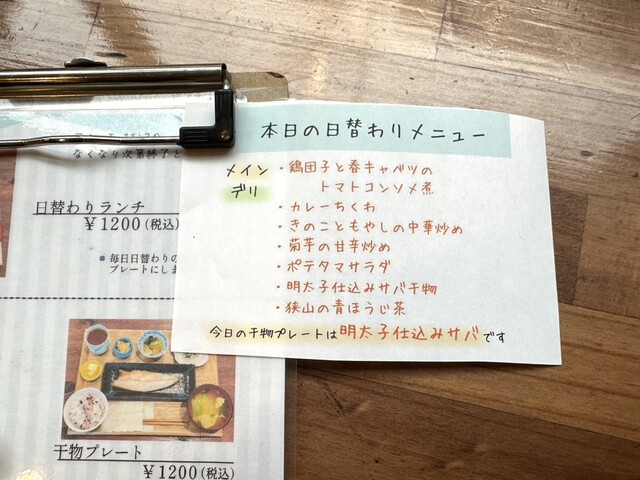 本日の日替わりメニュー
メイン ・鶏団子と春キャベツの
トマトコンソメ煮
デリ
・カレーちくわ
・きのこともやしの中華炒め
・菊芋の甘辛炒め
・ポテタマサラダ
・明太子仕込みサバ干物
・狭山の青ほうじ茶
今日の干物プレートは明太子仕込みサバです
なくなり次第終了と
日替わりランチ
￥1200(税込)
■ 毎日日替わりの
プレートにしま
干物プレート
￥1200(税込)